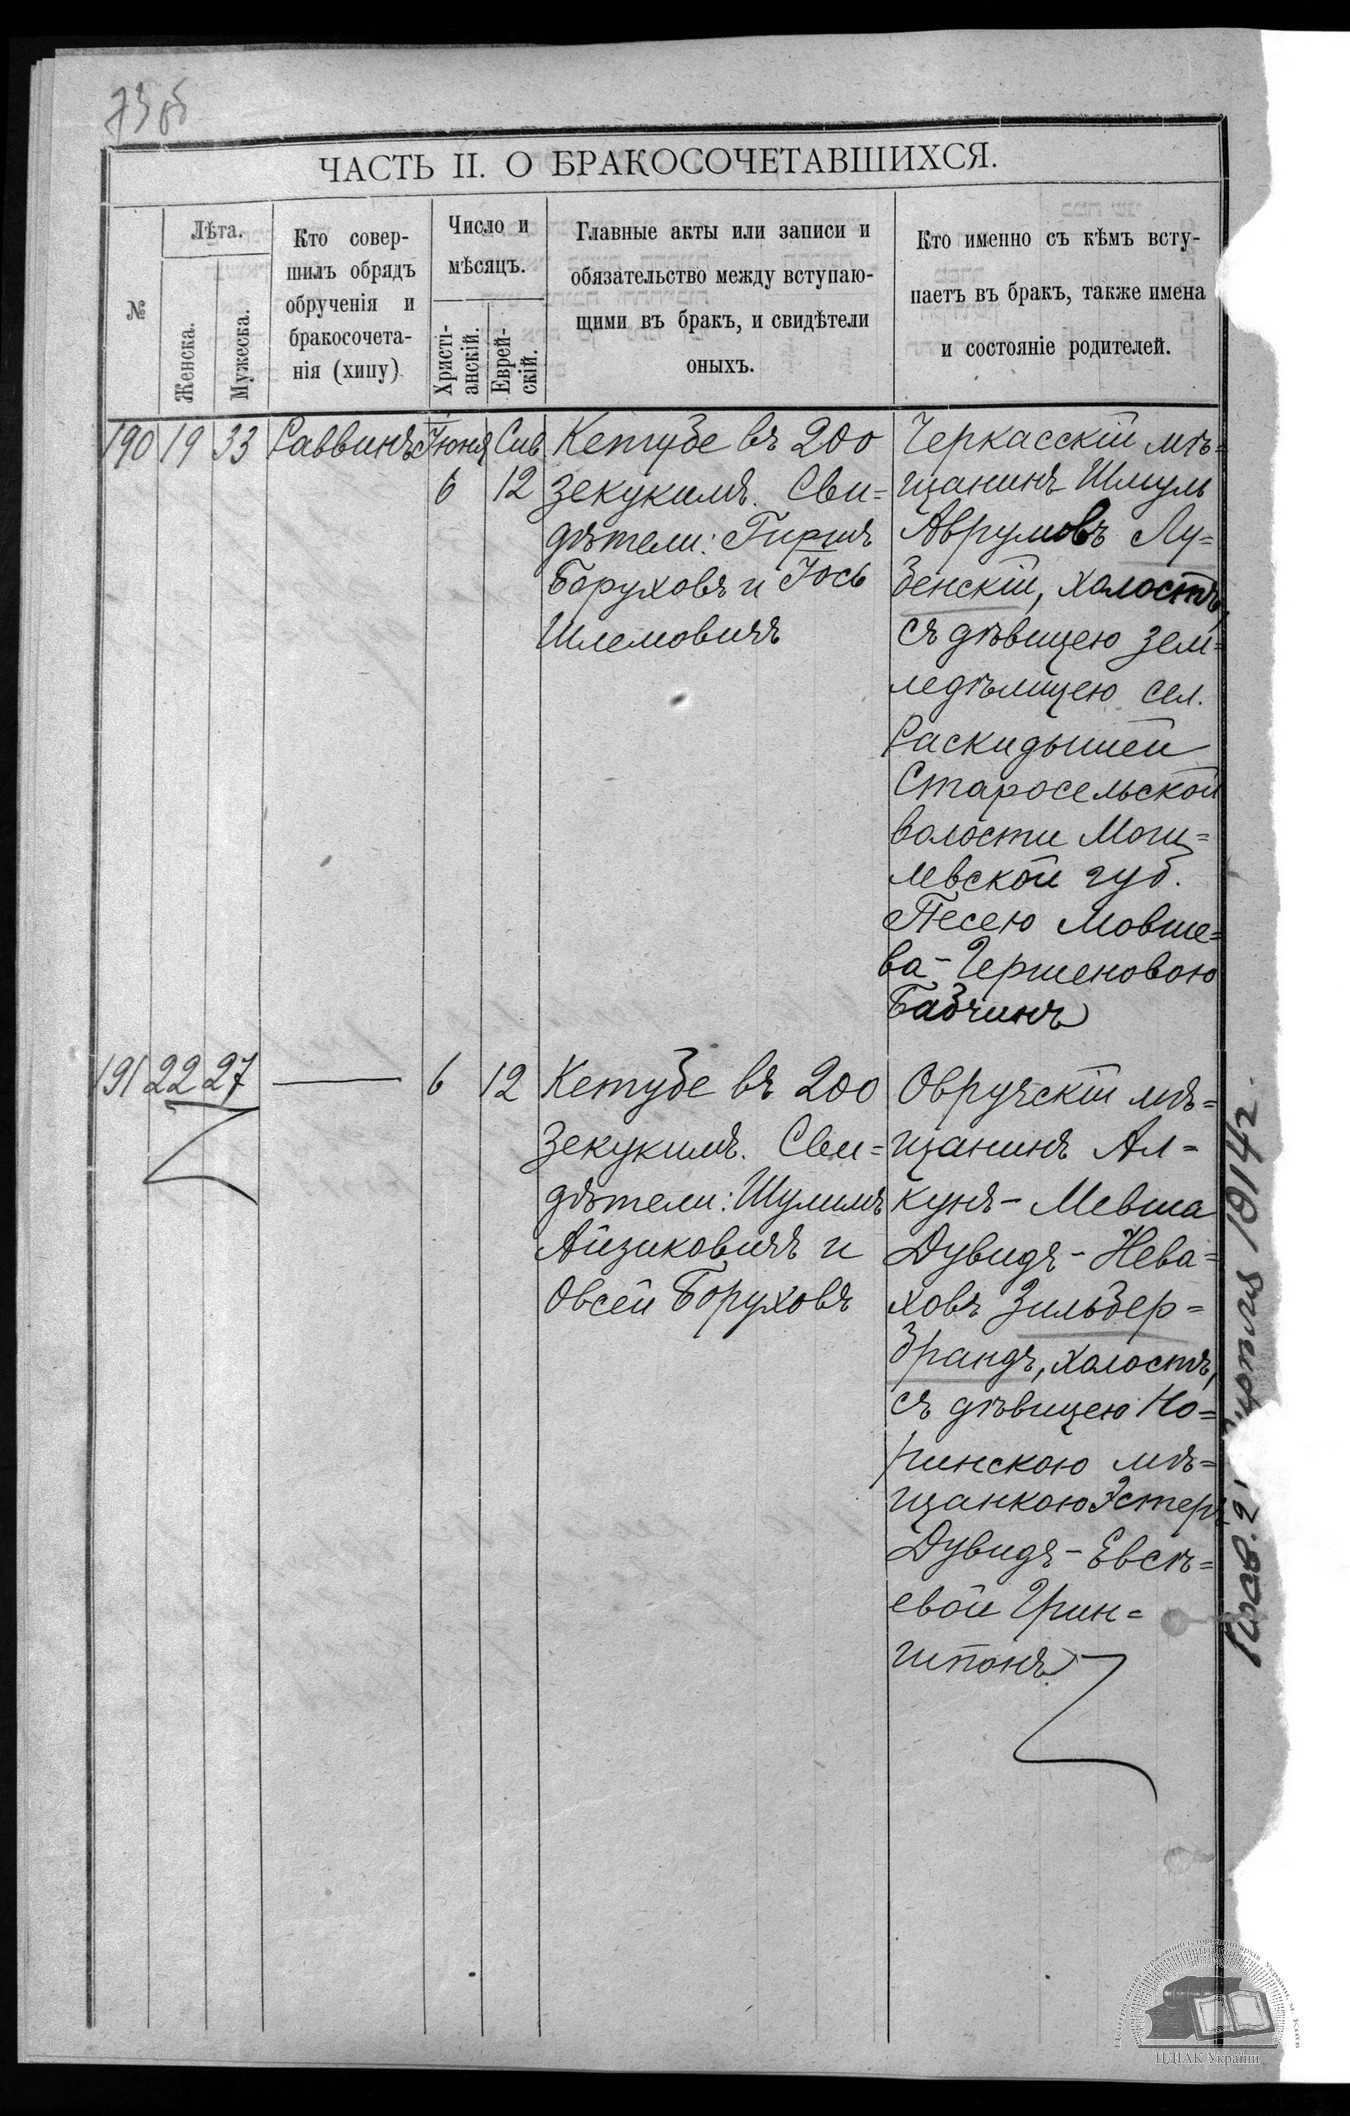 73об
ЧАСТЬ II. О БРАКОСОЧЕТАВШИХСЯ.
№
Лѣта.
Женска.
Мужеска.
Кто совер-
шилъ обрядъ
обрученія и
бракосочета-
нія (хипу)
Число и
мѣсяцъ.
Христі-
анскій.
Еврей-
скій.
Главные акты или записи и
обязательство между вступаю-
щими въ бракъ, и свидѣтели
оныхъ.
Кто именно съ кѣмъ всту-
паетъ въ бракъ, также имена
и состояніе родителей.
190 19 33 Саввинъ Іюня 6 Сив 12
Кетубе въ 200
зекукимъ. Сви=
дѣтели: Гиршъ
Боруховъ и Іось
Шлемовичъ
Черкасскій мѣ=
щанинъ Шмуль
Аврумовъ Лу=
бенскій, холостъ,
съ дѣвицею зем=
ледѣлицею сел.
Раскидышей
Старосельской
волости Моги=
левской губ.
Песею Мовше=
ва-Гершеновою
Бабчинъ
191 22 27 — 6 12
Кетубе въ 200
зекукимъ. Сви=
дѣтели: Шулимъ
Айзиковичъ и
Овсей Боруховъ
Овручскій мѣ=
щанинъ Ал=
кунъ-Мевша
Дувидъ-Нева=
ховъ Зильбер=
брандъ, холостъ,
съ дѣвицею Но=
ринскою мѣ=
щанкою Эстеръ
Дувидъ-Евсѣ=
евой Грин=
штонъ
1914 г.
ЦДІАК України